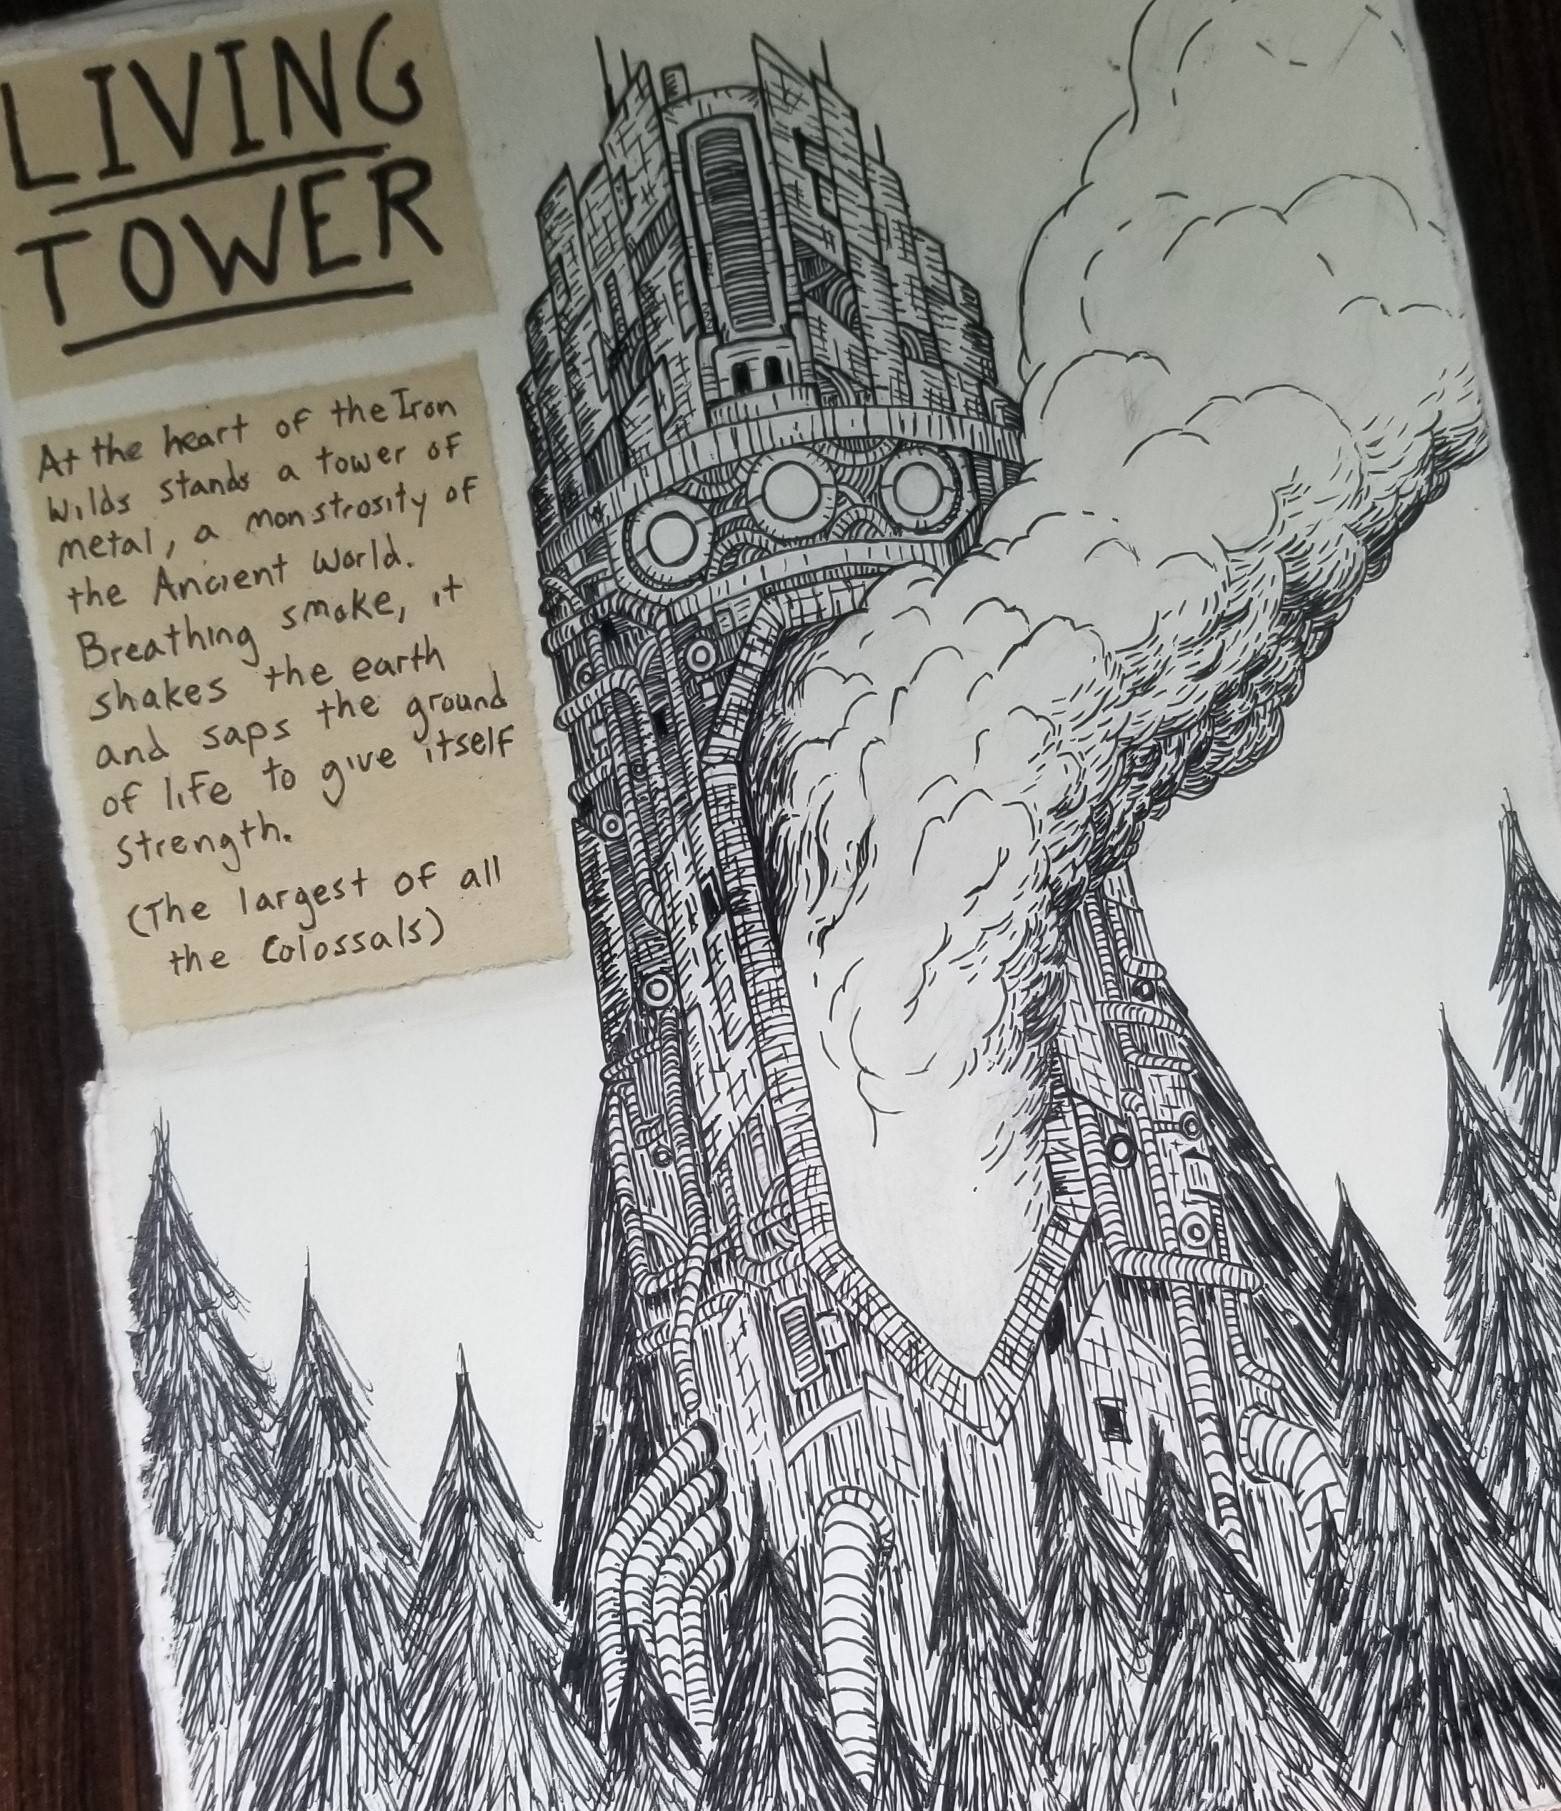 LIVING
TOWER
At the heart of the Iron
Wilds stands a tower of
metal, a monstrosity of
the Ancient World.
Breathing smoke, it
shakes the earth
and saps the ground
of life to give itself
strength.
(The largest of all
the Colossals)